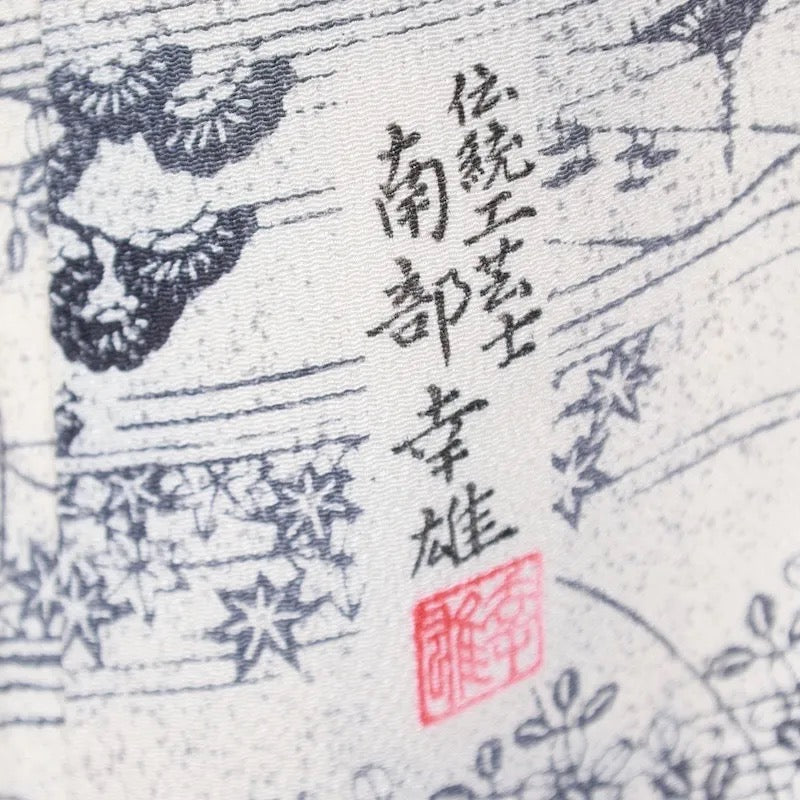 伝統工芸士
南部幸雄
幸雄